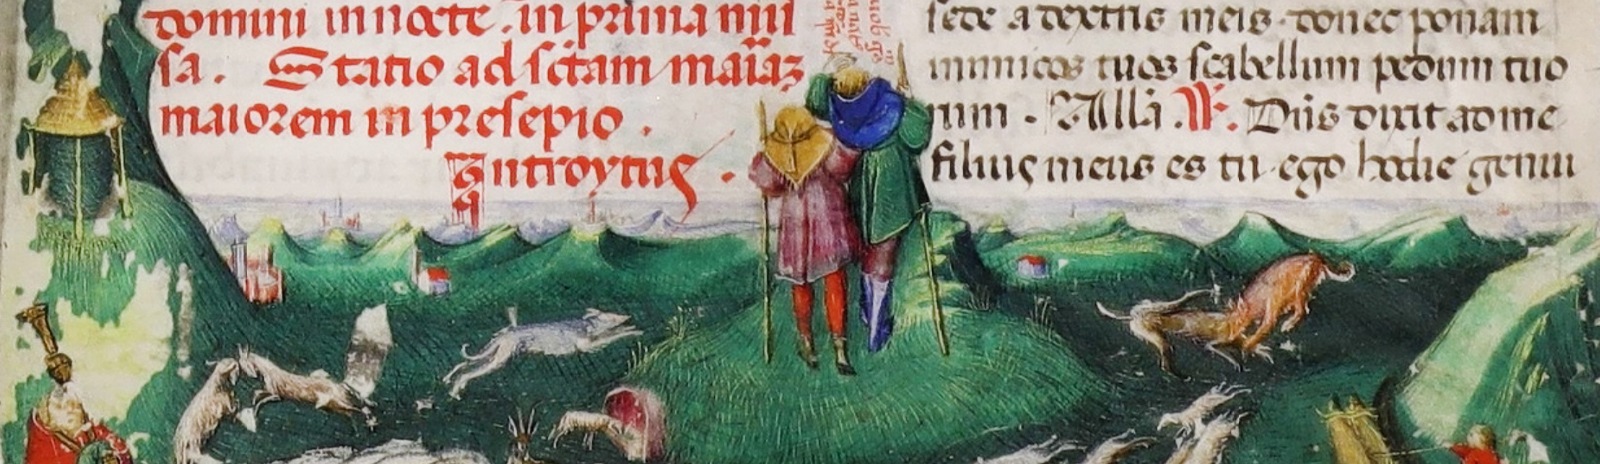 domini in nocte . in prima mis
sa . Statio ad sc̃tam maiã
maiorem in presepio .
Introytus .
sede a dextris meis . donec ponam
inimicos tuos scabellum pedum tuo
rum . Allã . V̶ . Dñs dixit ad me
filius meus es tu . ego hodie genui